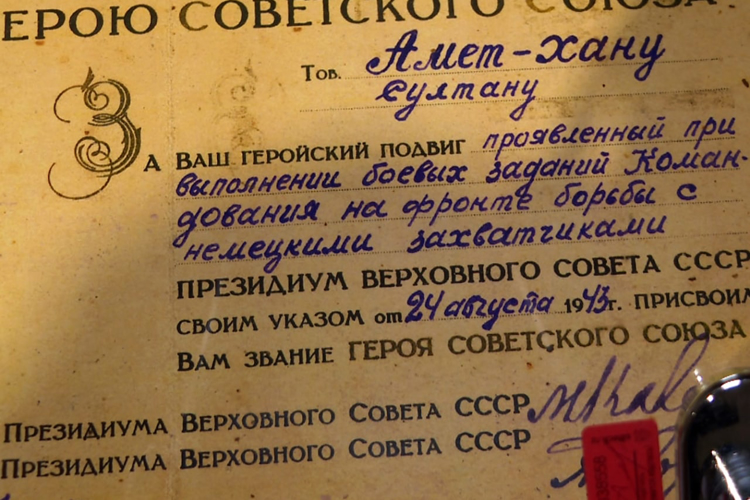 ЕРОЮ СОВЕТСКОГО СОЮЗА
Тов. Амет-хану
Султану
За Ваш геройский подвиг проявленный при
выполнении боевых заданий Коман-
дования на фронте борьбы с
немецкими захватчиками
ПРЕЗИДИУМ ВЕРХОВНОГО СОВЕТА СССР
СВОИМ УКАЗОМ от 24 августа 1943г. ПРИСВОИЛ
ВАМ ЗВАНИЕ ГЕРОЯ СОВЕТСКОГО СОЮЗА
ПРЕЗИДИУМА ВЕРХОВНОГО СОВЕТА СССР
ПРЕЗИДИУМА ВЕРХОВНОГО СОВЕТА СССР